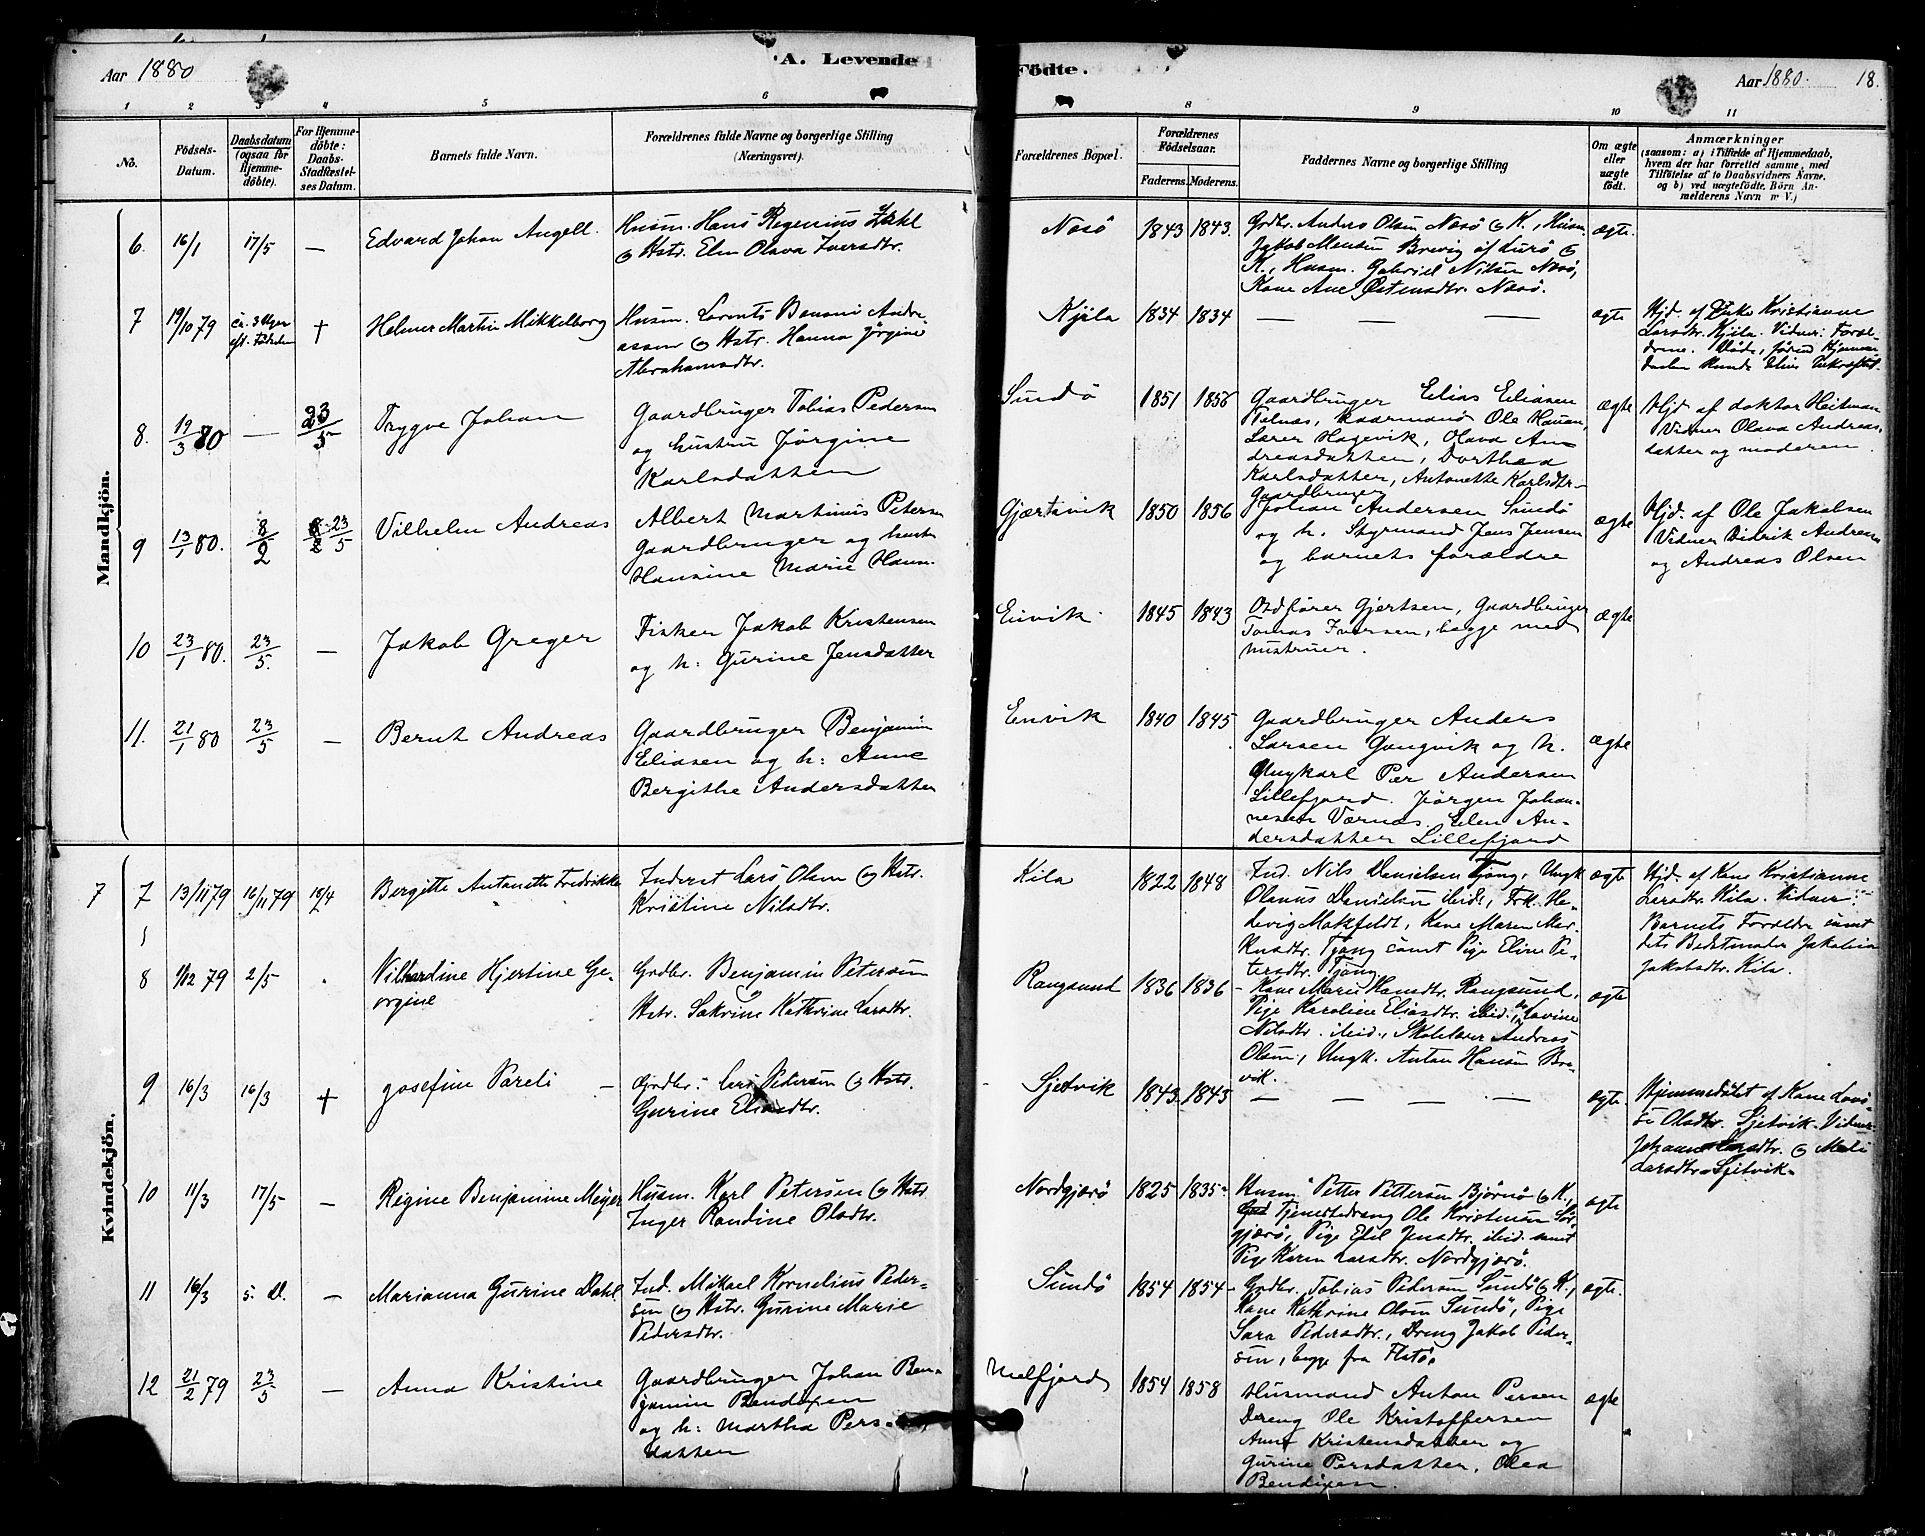 Aar 1880
A. Levende Födte.
Aar 1880. 18.
1 2 3 4 5 6 8 9 10 11
No.
Födsels-Datum.
Daabsdatum (ogsaa for Hjemmedöbte).
For Hjemmedöbte: Daabs-Stadfæstelses Datum.
Barnets fulde Navn.
Forældrenes fulde Navne og borgerlige Stilling (Næringsvei).
Forældrenes Bopæl.
Forældrenes Födselsaar.
Faderens. Moderens.
Faddernes Navne og borgerlige Stilling
Om ægte eller uægte födt.
Anmærkninger
(saasom: a) i Tilfælde af Hjemmedaab,
hvem der har forrettet samme, med
Tilföielse af to Daabsvidners Navne,
og b) ved uægtefödte Börn An-
melderens Navn
Mandkjön.
6. 16/1 17/5 — Edvard Johan Angell.
Husm. Hans Regenius
& Hstr. Elen Olava Iversdtr.
Nesö 1843 1843.
Grdbr. Anders Olsen Nesö & K., Husm.
Jakob Mensen Brevig af Lurö &
K., Husm. Gabriel Nilsen Nesö,
Kone Ane Östensdtr. Nesö.
ægte.
7 19/10 79 ca. 3 Uger eft. Födselen + Helmer Martin Mikkelborg
Husm. Lorents Benoni Andre
assen & Hstr. Hanna Jörgine
Abrahamsdtr.
Kjila 1834 1834 — — — ægte
Hjd. af Enke Kristianne
Larsdtr. Kjila. Vidner: Foræl-
drene.
8. 19/3 80 — 23/5 Trygve Johan
Gaardbruger Tobias Pedersen
og hustru Jörgine
Karlsdatter
Sundö 1851 1856
Gaardbruger Elias Eliasen
Telnæs, Kaarmand Ole Hansen,
Lærer Hagevik, Olava An-
dreasdatter, Dorthea
Karlsdatter, Antonette Karlsdtr.
ægte
Hjd af doktor Heitman
Vidner Olava Andreas-
datter og moderen
9 13/1 80. 8/2 23/5 Vilhelm Andreas
Albert Martinus Petersen
Gaardbruger og hustr.
Hansine Marie Hans.
Gjærtsvik 1850 1856
Gaardbruger
Johan Andersen Sundö
og h. Styrmand Jens Jensen
og barnets forældre
ægte
Hjd. af Ole Jakobsen
Vidner Didrik Andersen
og Andreas Olsen
10 23/1 80. 23/5. — Jakob Greger
Fisker Jakob Kristensen
og h: Gurine Jensdatter
Envik. 1845 1843
Ordförer Gjertsen, Gaardbruger
Tomas Iversen, begge med
hustruer.
ægte
11. 21/1 80 23/5 — Bernt Andreas
Gaardbruger Benjamin
Eliasen og h: Anne
Bergithe Andersdatter
Envik 1840 1845
Gaardbruger Anders
Larsen Gangvik og h.
Ungkarl Per Andersen
Lillefjord. Jörgen Johan-
nesen Værnæs. Elen An-
dersdatter Lillefjord
ægte
Kvindekjön.
7 7 13/11 79 16/11 79 18/4 Bergitte Antonette Fredrikke
Inderst Lars Olsen & Hstr.
Kristine Nilsdtr.
Kila 1822 1848
Ind. Nils Danielsen Tjong, Ungk
Olanus Danielsen ibid., Frk. He-
devig Makfeldt, Kone Maren Mar-
kusdtr. Tjong samt Pige Eline Pe-
tersdtr. Tjong.
ægte
Hjd. af Kone Kristianne
Larsdtr. Kila. Vidner:
Barnets Forældre samt
dets Bedstmoder Jakobine
Jakobsdtr. Kila.
8 1/12 79 2/5 Vilhardine Hjertine Ge-
orgine
Grdbr. Benjamin Petersen
&
Hstr. Sakrine Kathrine Larsdtr.
Rangsund 1836 1836
- Kone Marie Hansdtr. Rangsund,
Pige Karoline Eliasdtr. ibid., do Lavine
Nilsdtr. ibid., Skolelærer Andreas
Olsen, Ungk. Anton Hansen Bre-
vik.
ægte
9 16/3 16/3 + Josefine Pareli —
Grdbr. Lars Pedersen & Hstr.
Gurine Eliasdtr.
Sjetvik 1843 1843 — — — — ægte.
Hjemmedöbt af Kone Lovi-
se Olsdtr. Sjetvik. Vidner
Johanne Larsdtr. & Meli
Larsdtr. Sjetvik.
10 11/3 17/5 — Regine Benjamine Meyer
Husm. Karl Petersen & Hstr.
Inger Randine Olsdtr.
Nordgjærö 1825 1835
Husm Petter Pettersen Björnö & K.,
Tjenestedreng Ole Kristensen Sör-
gjærö, Pige Edil Jensdtr. ibid. samt
Pige Karen Larsdtr. Nordgjærö.
ægte
11 16/3 s. D. — Marianna Gurine Dahl
Ind. Mikael Kornelius Peder-
sen & Hstr. Gurine Marie
Pedersdtr.
Sundö 1854 1854
- Grdbr. Tobias Pedersen Sundö & K.,
Kone Kathrine Olsen Sundö, Pige
Sara Pedersdtr., Dreng Jakob Peder-
sen, begge fra Flatö.
ægte.
12 21/2 79 23/5 — Anna Kristine
Gaardbruger Johan Ben-
jamin Bendixen
og h: Martha Pers-
datter
Melfjord 1854 1858
Husmand Anton Persen
Dreng Ole Kristoffersen
Anne Kristensdatter og
Gurine Persdatter, Olea
Bendixen.
ægte